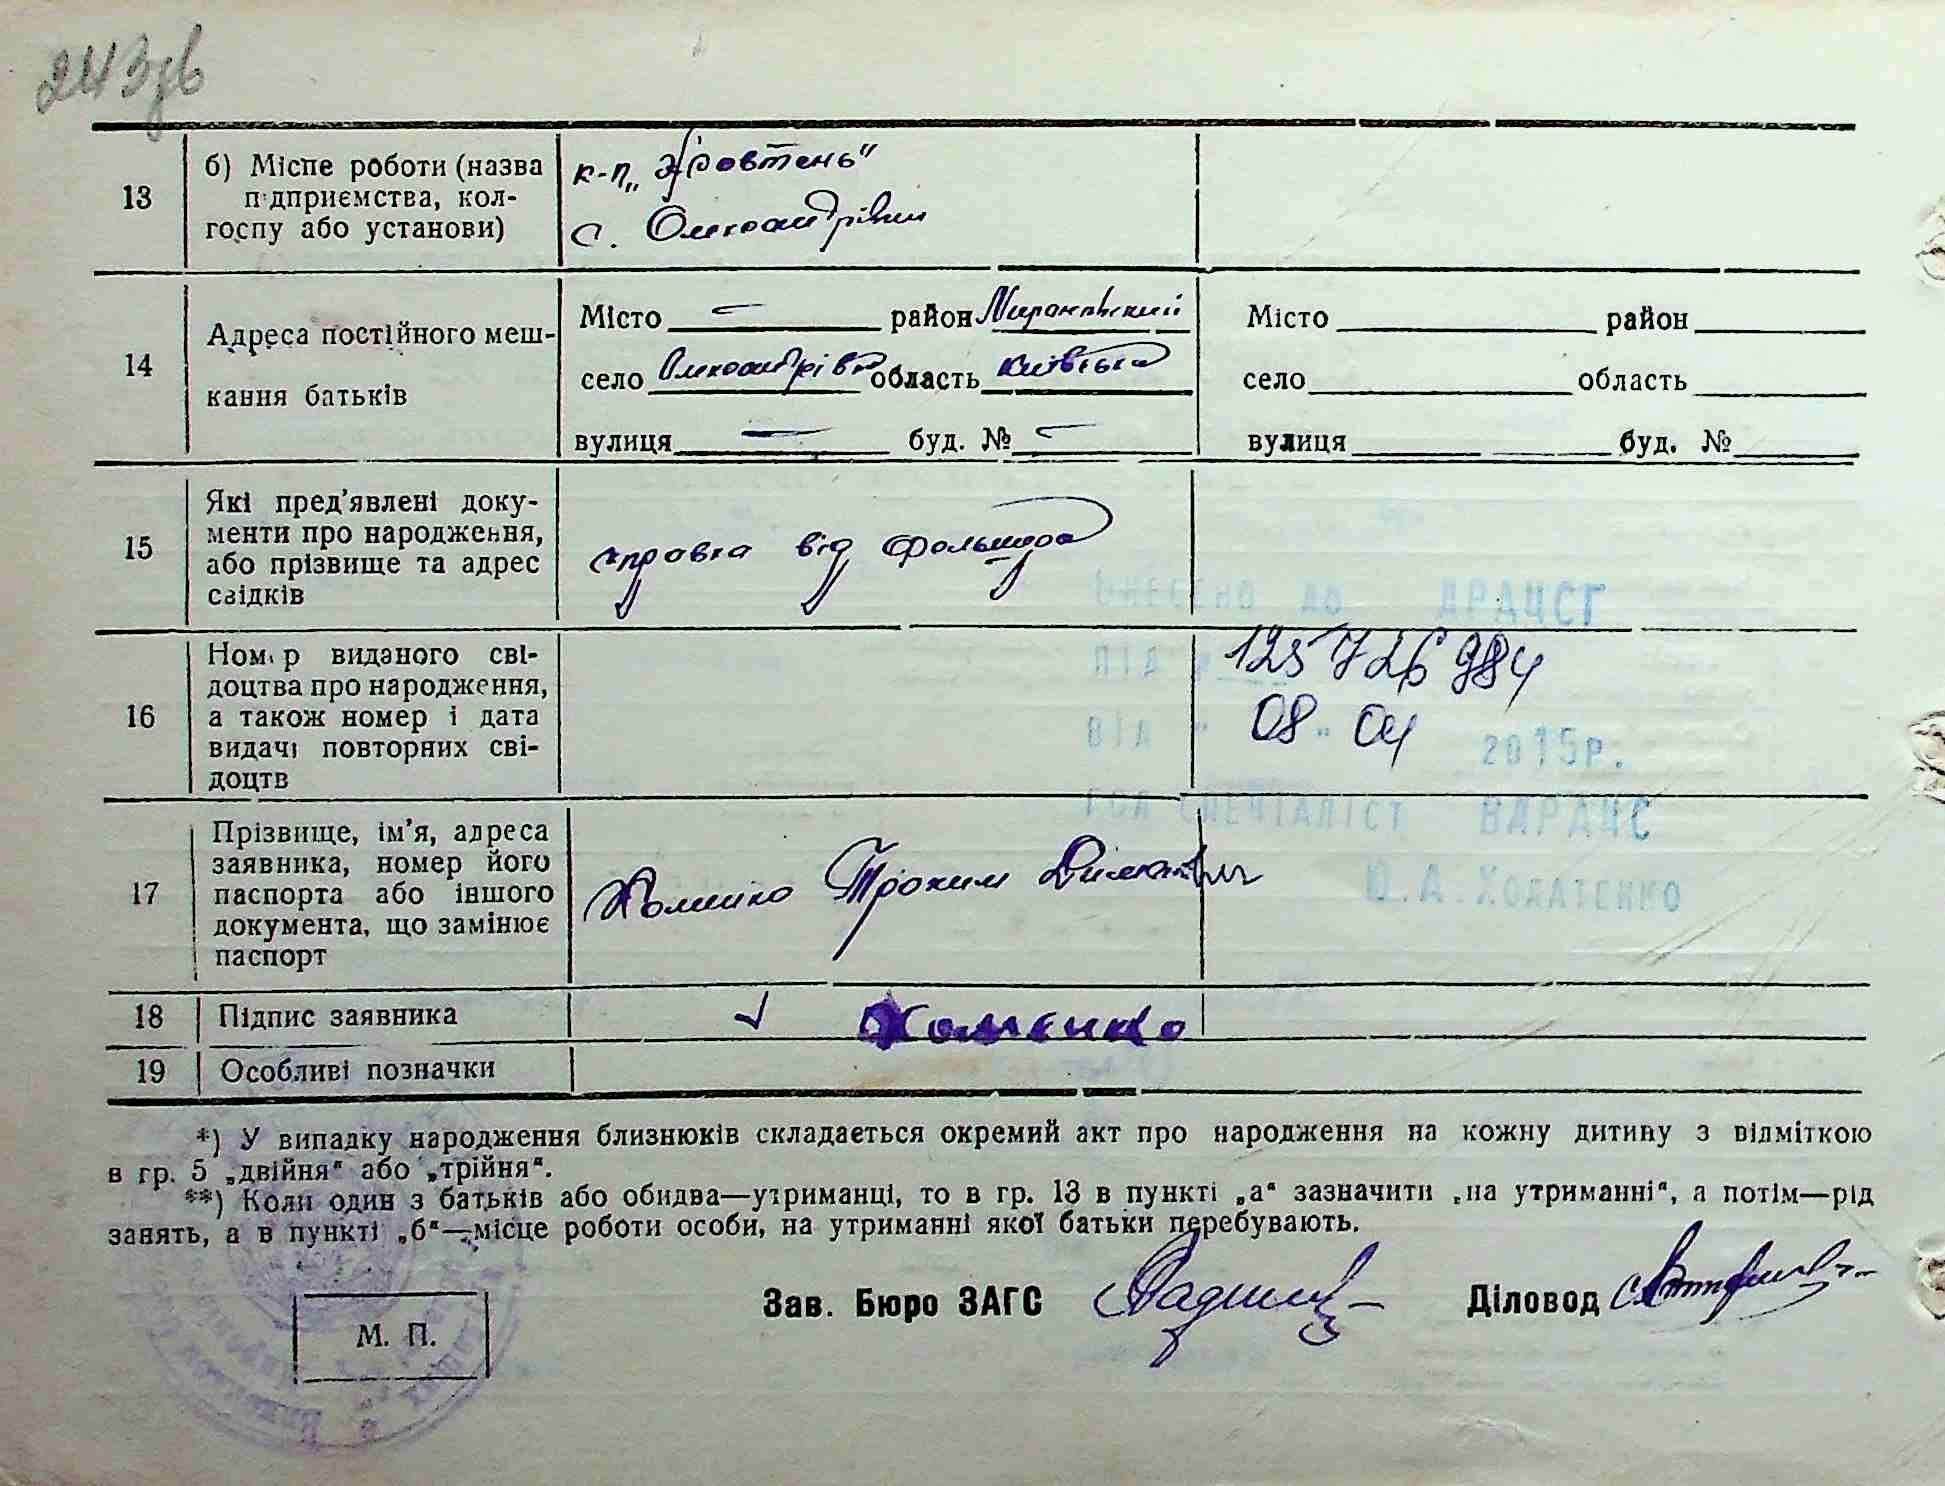 243зв
13
б) Місце роботи (назва підприємства, колгоспу або установи)
к-п „Жовтень"
с. Олександрівки
14
Адреса постійного мешкання батьків
Місто — район Миронівський
село Олександрівка область Київська
вулиця — буд. № —
Місто район
село область
вулиця буд. №
15
Які пред'явлені документи про народження, або прізвище та адрес свідків
справка від фельшера
16
Номер виданого свідоцтва про народження, а також номер і дата видачі повторних свідоцтв
ВНЕСЕНО ДО ДРАЦСГ
ПІД № 125726984
ВІД "08" 04 2015р.
ГОЛ СПЕЦІАЛІСТ ВДРАЦС
Ю.А.ХОДАТЕНКО
17
Прізвище, ім'я, адреса заявника, номер його паспорта або іншого документа, що замінює паспорт
Хоменко Трохим
18
Підпис заявника
Хоменко
19
Особливі позначки
*) У випадку народження близнюків складається окремий акт про народження на кожну дитину з відміткою
в гр. 5 „двійня" або „трійня".
**) Коли один з батьків або обидва—утриманці, то в гр. 13 в пункті „а" зазначити „на утриманні", а потім—рід
занять, а в пункті „б"—місце роботи особи, на утриманні якої батьки перебувають.
М. П.
Зав. Бюро ЗАГС
Діловод